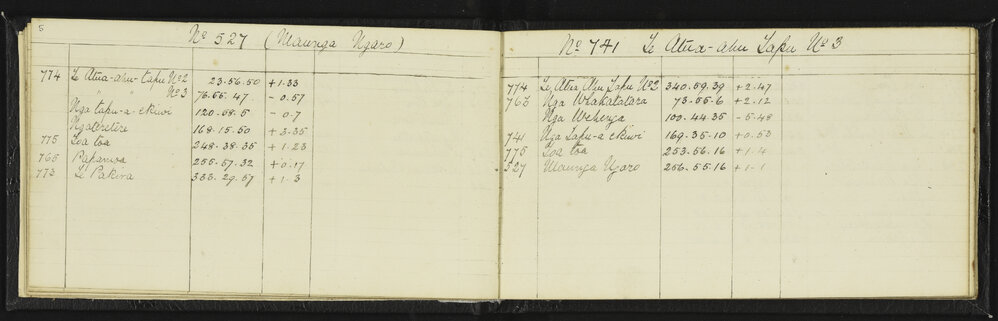 5
No 527 (Maunga Ngaro)
774 Te Atua-ahu-tapu No 2 23.56.50 +1.33
" " No 3 76.55.47 - 0.57
Nga tapu-a-ekiwi 120.58.5 - 0.7
Ngateretere 168.15.50 +3.35
775 Toa toa 248.38.35 +1.23
765 Papamoa 255.57.32 +0.17
773 Te Pakira 333.29.57 +1.3
No 741 Te Atua-ahu Tapu No 3
774 Te Atua Ahu Tapu No 2 340.59.39 +2.47
Nga Whakatatara 73.55.6 +2.12
Nga Wehenga 100.44.35 - 5.48
741 Nga Tapu-a ekiwi 169.35.10 +0.53
775 Toa toa 253.56.16 +1.4
527 Maunga Ngaro 256.55.16 +1.1